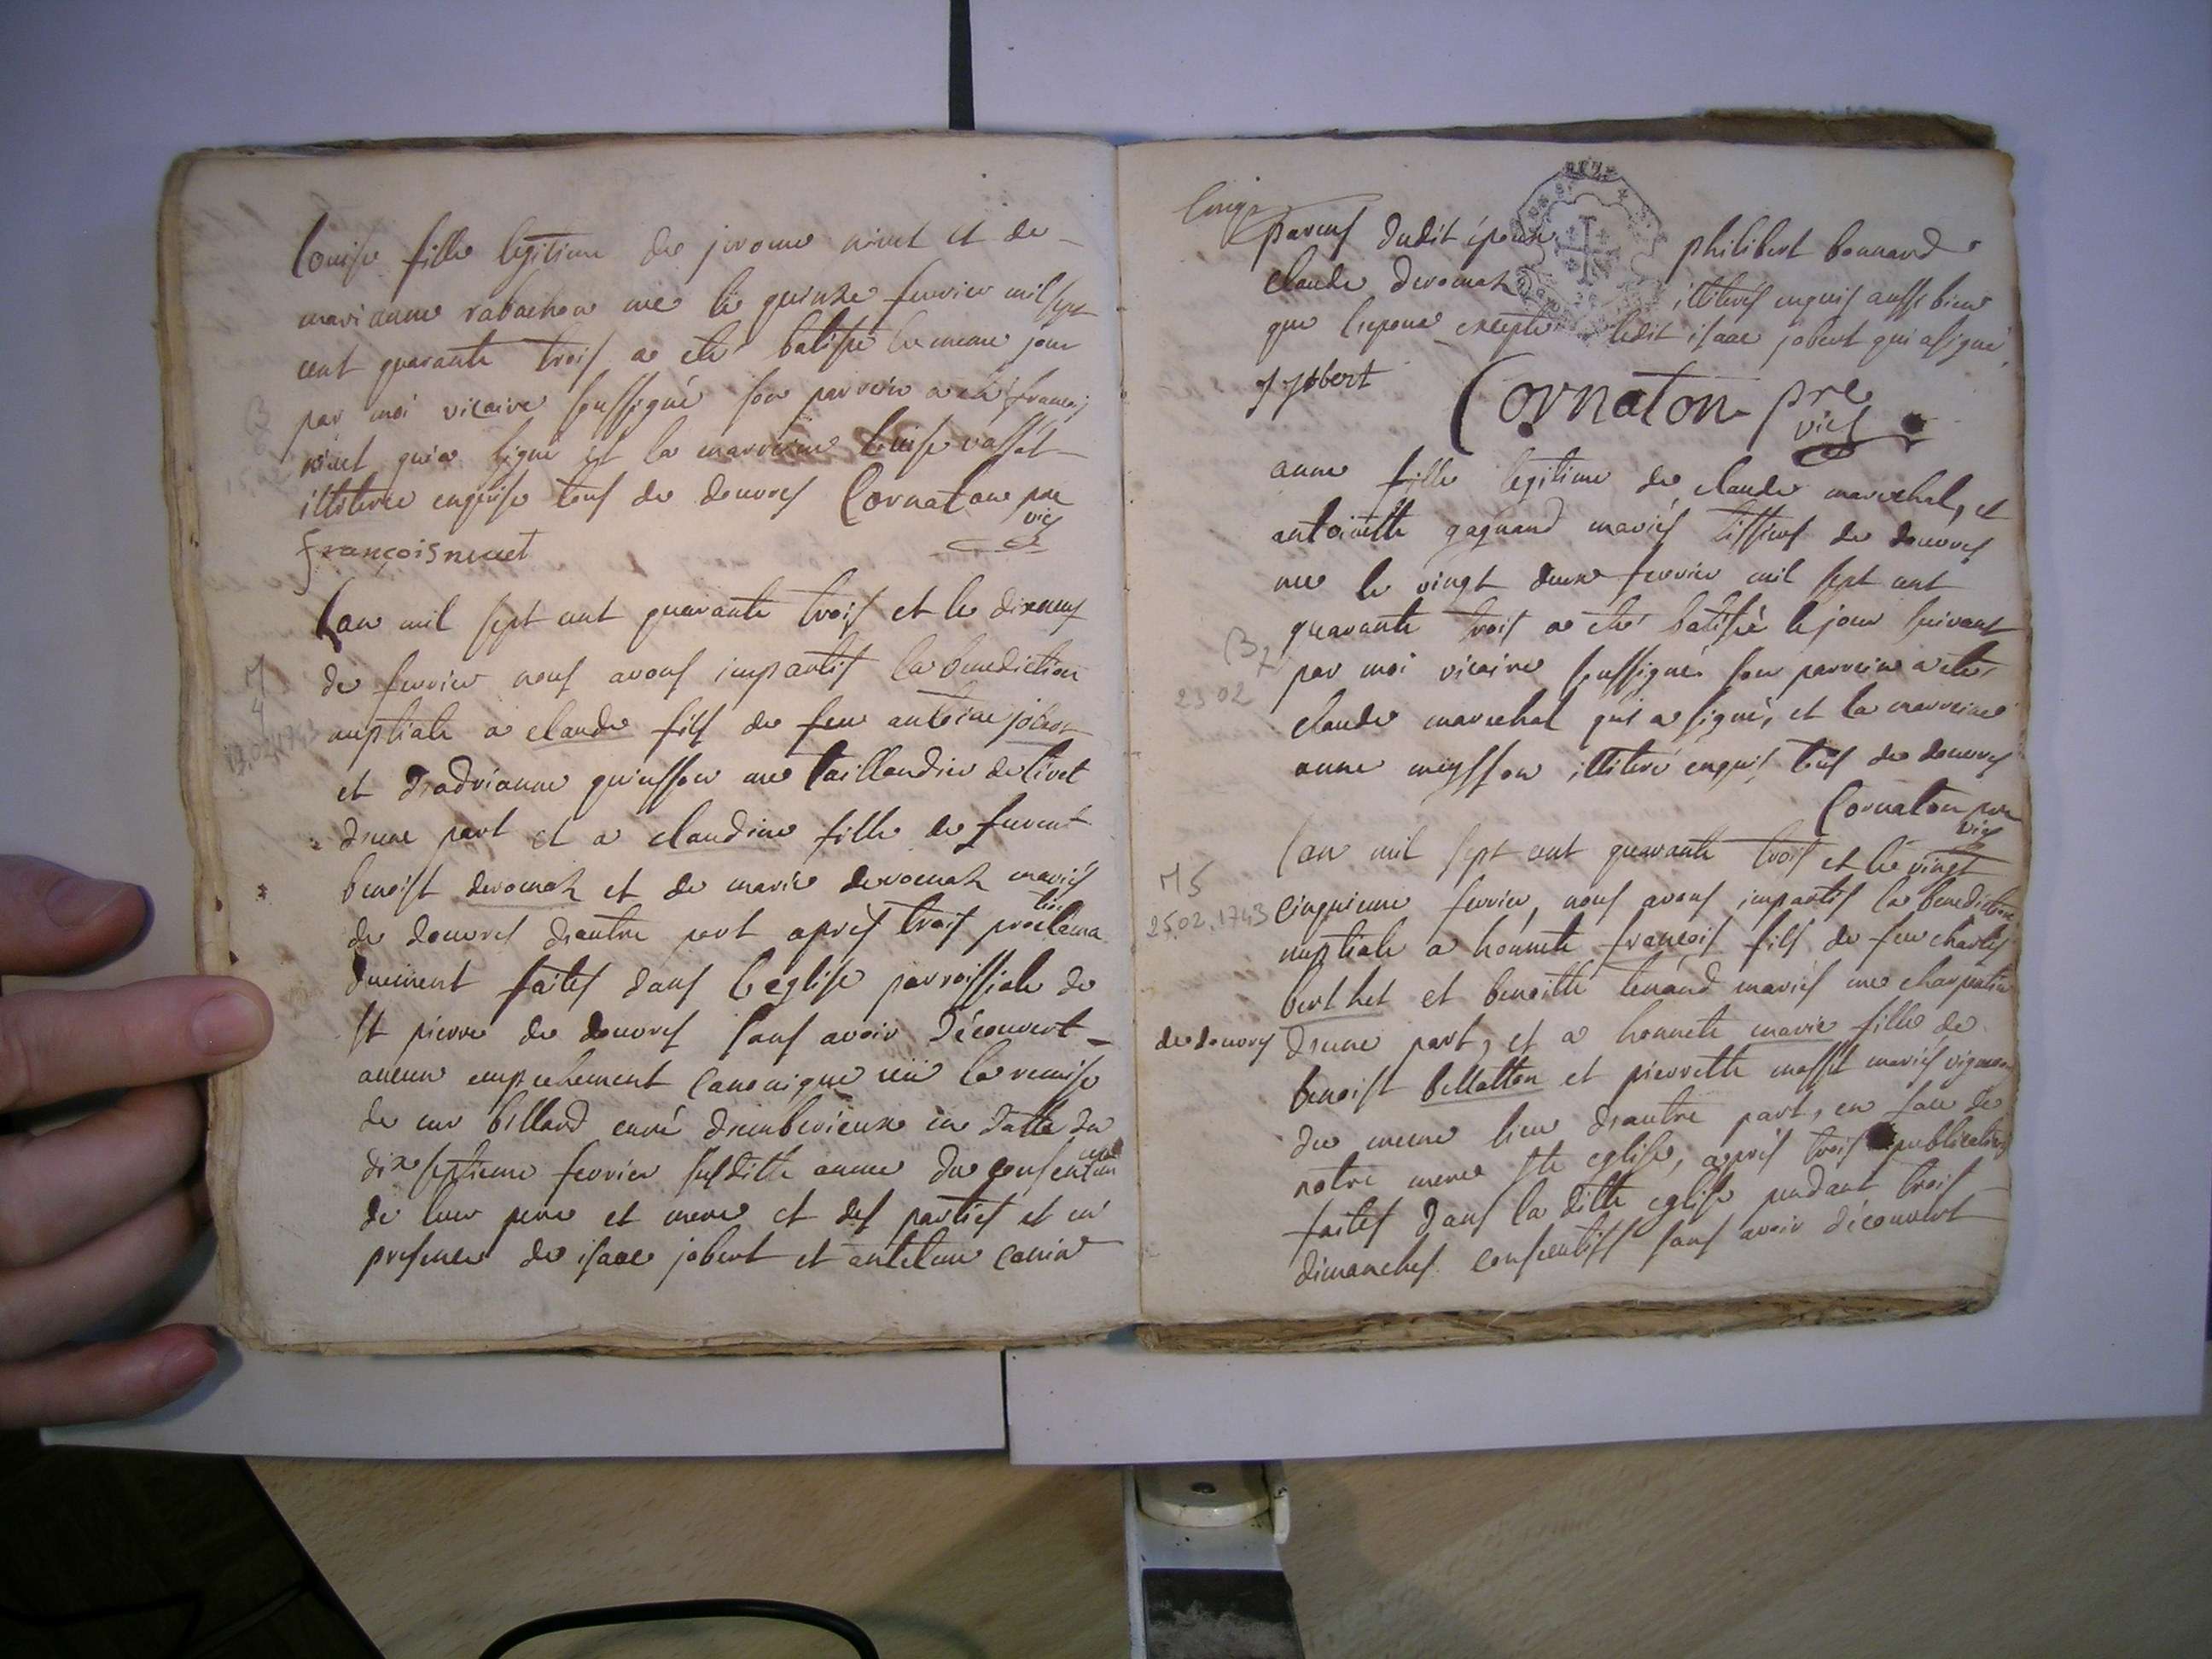 Louise fille legitime de jerome nivet et de
marianne rabachon née le quinze fevrier mil sept
cent quarante trois a eté batisée le meme jour
par moi vicaire soussigné son parrein a eté françois
nivet qui a signé et la marreine Louise vassat
illiterée enquise tous de douvres Cornaton pre
vics
françois nivet
Lan mil sept cent quarante trois et le dixneuf
de fevrier nous avons impartis la benediction
nuptiale a claude fils de feu antoine jobert
et d'adrianne quinsson me taillandier de livet
d'une part et a claudine fille de furent
benoist deromaz et de marie deromaz mariés
de douvres d'autre part après trois proclama
tions
duement faites dans l'eglise parroissiale de
st pierre de douvres sans avoir découvert
aucun empechement canonique vu la remise
de mr billard curé d'amberieux en datte du
dix septieme fevrier susditte année du consentem
ent
de leur pere et mere et des parties et en
presence de isaac jobert et antelme conin
M
4
19.02.1743
B
parens dudit époux philibert bonnard
claude deromaz illiterés enquis aussi bien
que l'epouse excepté ledit isaac jobert qui a signé
J jobert Cornaton pre
vics
anne fille legitime de claude marechal, et
antoinette gagnand mariés tissiers de douvres
née le vingt deux fevrier mil sept cent
quarante trois a eté batisée le jour suivant
par moi vicaire soussigné son parrein a eté
claude marechal qui a signé, et la marreine
anne meysson illiteré enquis, tous de douvres
Cornaton pre
vics
B 7
23 02
Lan mil sept cent quarante trois et le vingt
cinquieme fevrier, nous avons impartis la benediction
nuptiale a honnete françois fils de feu charles
berthet et benoitte tenand mariés me charpentier
de douvres d'une part, et a honnete marie fille de
benoist bellatton et pierrette massit mariés vignerons
du meme lieu d'autre part, en face de
notre mere ste eglise, après trois publications
faites dans la ditte eglise pendant trois
dimanches consecutifs sans avoir découvert
M 5
25.02.1743